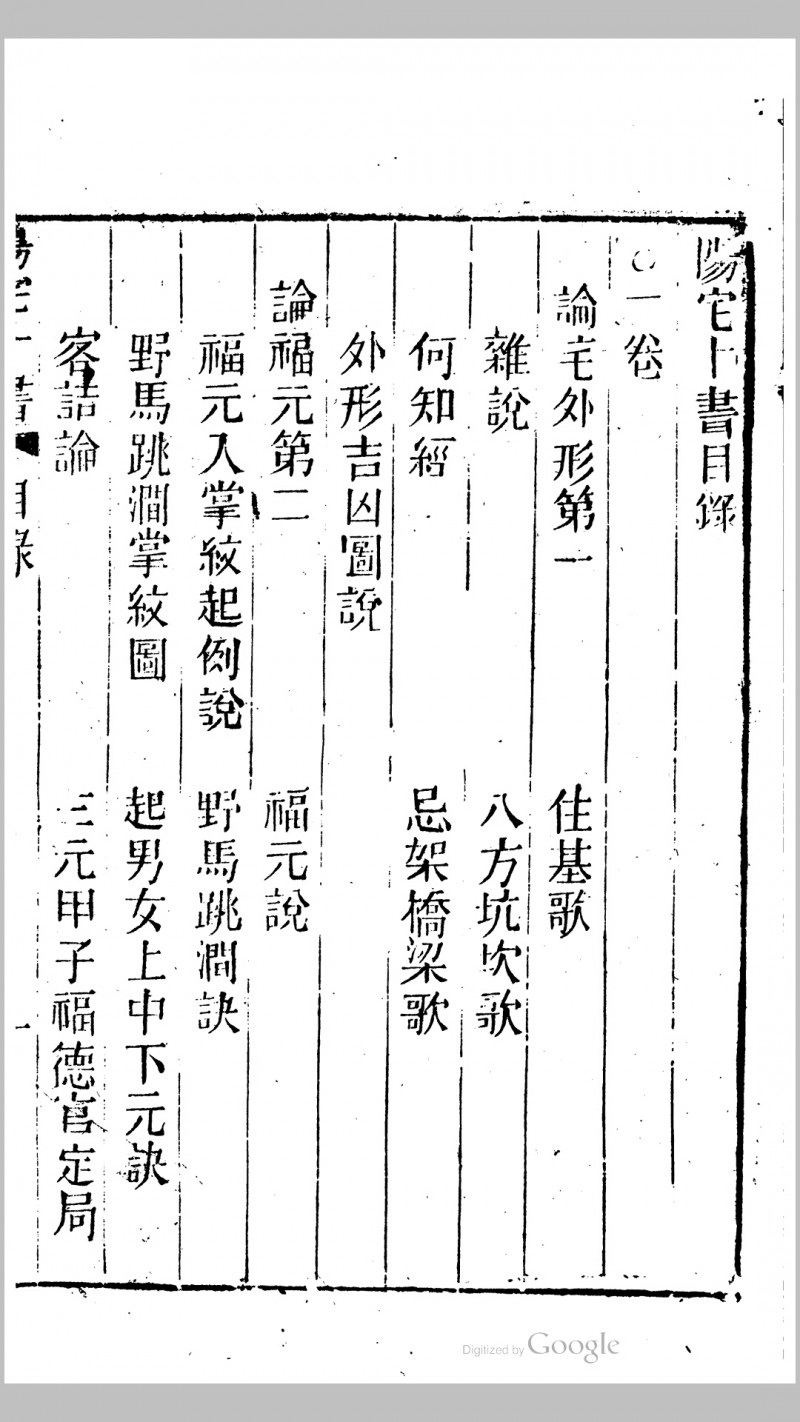 陽宅十書目錄
○一卷
論宅外形第一
住基歌
雜說
八方坑坎歌
何知經
忌架橋梁歌
外形吉凶圖說
論福元第二
福元說
福元入掌紋起例說
野馬跳澗訣
野馬跳澗掌紋圖
起男女上中下元訣
客詰論
三元甲子福德宮定局
陽宅十書 目錄 一
Digitized by Google